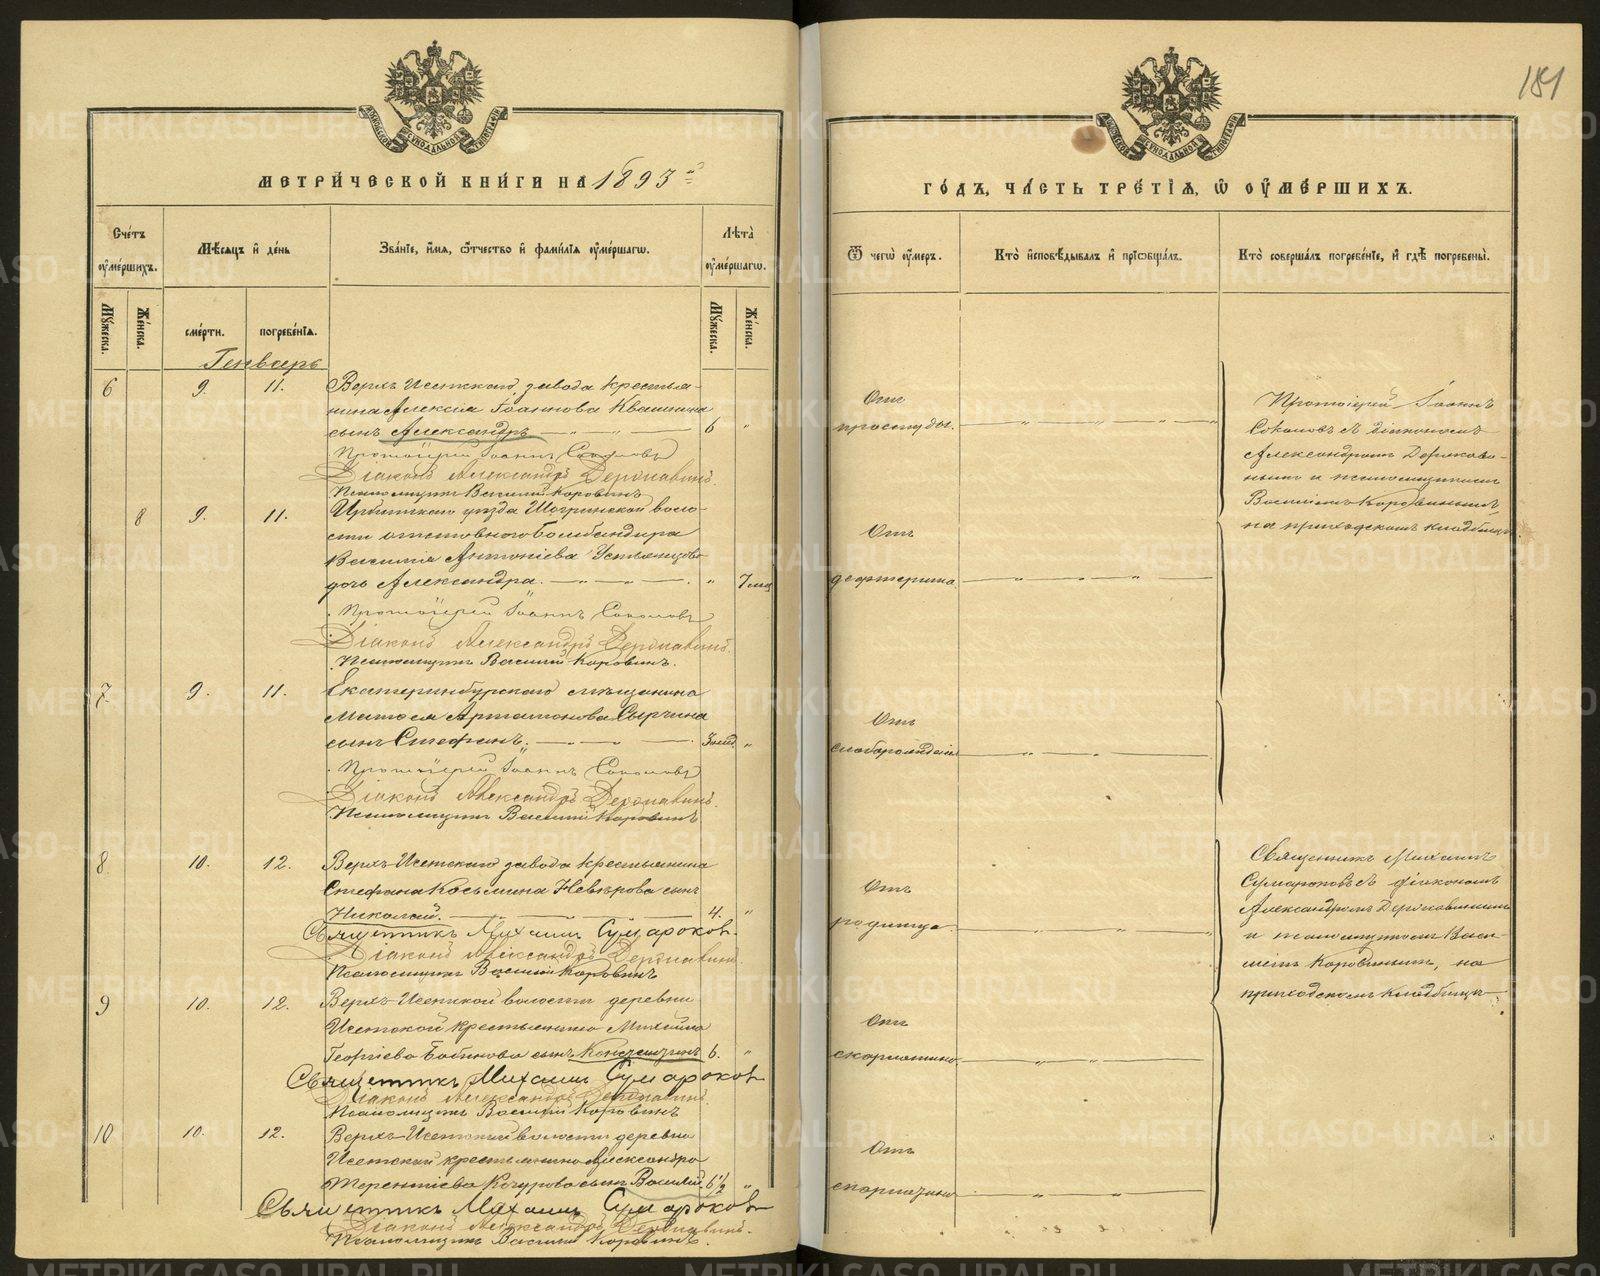 181
МЕТРИЧЕСКОЙ КНИГИ НА 1893 й
ГОДЪ, ЧАСТЬ ТРЕТІЯ, Ѿ ОУМЕРШИХЪ.
Счетъ оумершихъ.
Мѣсяцъ и день
Званіе, имя, ѿчество и фамилія оумершагѡ.
Лѣта оумершагѡ.
Ѿ чегѡ оумеръ.
Кто исповѣдывалъ и пріѡбщалъ.
Кто совершалъ погребеніе, и гдѣ погребены.
Мужеска.
Женска.
смерти.
погребенія.
Мужеска.
Женска.
Генварь
6 9. 11. Верхъ Исетскаго завода крестья-
нина Алексія Іоаннова Квашнина
сынъ Александръ 6 "
Отъ
простуды.
Протоіерей Іоаннъ Соколовъ
Діаконъ Александръ Державинъ.
Псаломщикъ Василій Коровинъ
Протоіерей Іоаннъ
Соколовъ съ діакономъ
Александромъ Держави-
нымъ и псаломщикомъ
Василіемъ Коровинымъ,
на приходскомъ кладбищѣ.
8 9. 11. Ирбитскаго уѣзда Шогринской воло-
сти отставного бомбандира
Василія Антоніева Устьянцова
дочь Александра. " 7 мѣс
Отъ
дефтерита.
Протоіерей Іоаннъ Соколовъ
Діаконъ Александръ Державинъ.
Псаломщикъ Василій Коровинъ.
7. 9. 11. Екатеринбургскаго мѣщанина
Матвея Артамонова Сырчина
сынъ Стефанъ. 3 мѣс. "
Отъ
слаборожденія
Протоіерей Іоаннъ Соколовъ
Діаконъ Александръ Державинъ.
Псаломщикъ Василій Коровинъ
8 10. 12. Верхъ-Исетскаго завода крестьянина
Стефана Косьмина Невѣрова сынъ
Николай. 4. "
Отъ
родимца
Священникъ Михаилъ Сумароковъ.
Діаконъ Александръ Державинъ.
Псаломщикъ Василій Коровинъ
Священникъ Михаилъ
Сумароковъ съ діакономъ
Александромъ Державинымъ
и псаломщикомъ Васи-
ліемъ Коровинымъ, на
приходскомъ кладбищѣ
9 10. 12. Верхъ-Исетской волости деревни
Исетской крестьянина Михаила
Георгіева Бабинова сынъ Константинъ 6. "
Отъ
скарлатины
Священникъ Михаилъ Сумароковъ
Діаконъ Александръ Державинъ.
Псаломщикъ Василій Коровинъ
10 10. 12. Верхъ-Исетской волости деревни
Исетской крестьянина Александра
Терентіева Кочурова сынъ Василій 6 1/2 "
Отъ
скарлатины
Священникъ Михаилъ Сумароковъ
Діаконъ Александръ Державинъ.
Псаломщикъ Василій Коровинъ.
METRIKI.GASO-URAL.RU